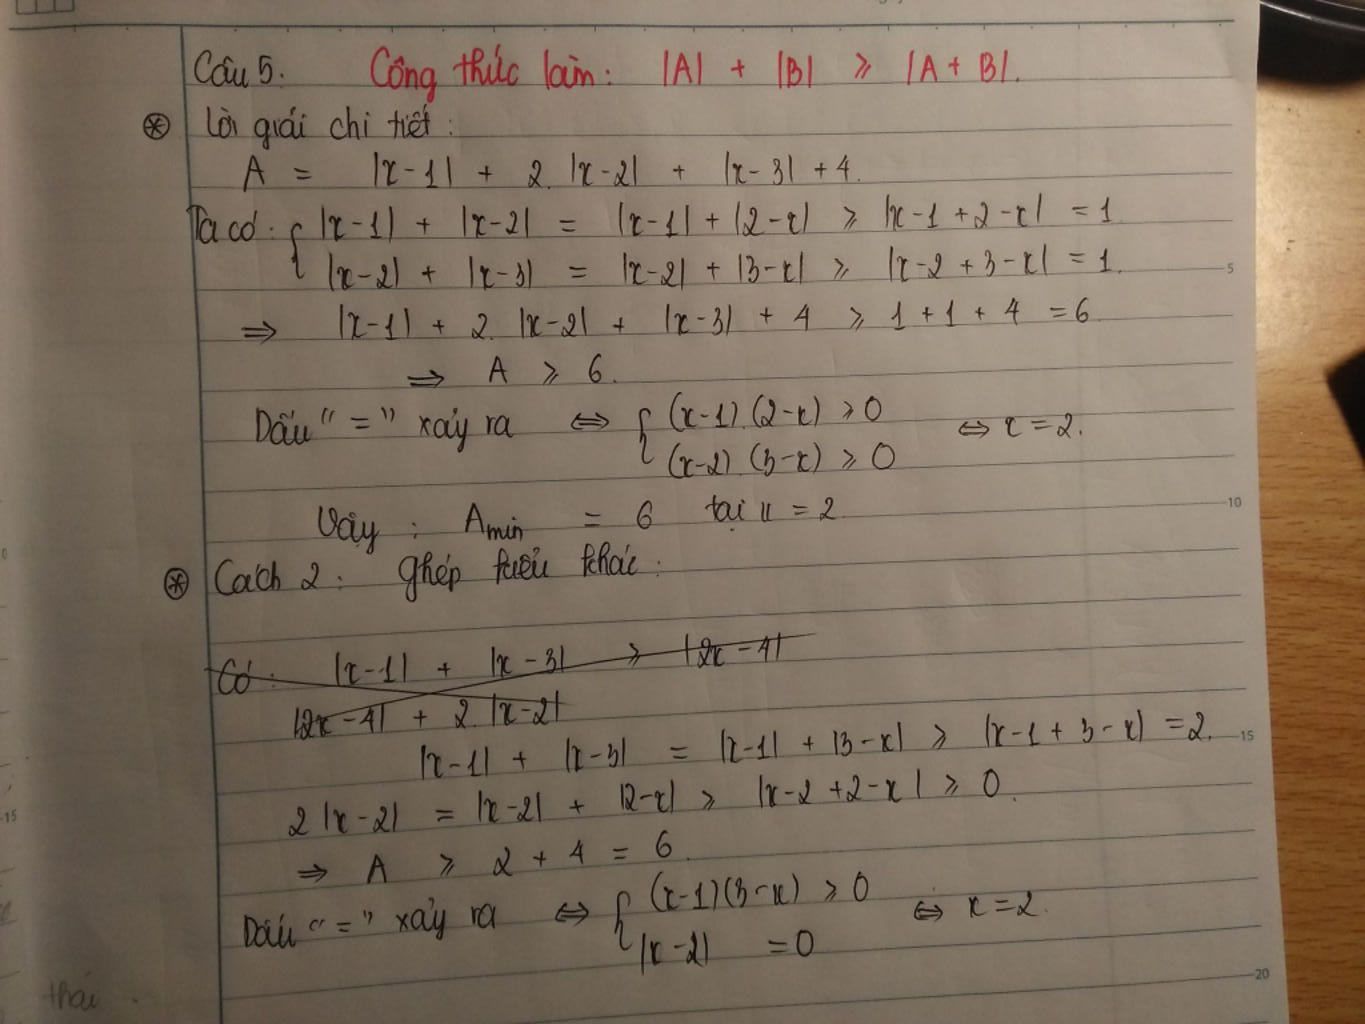 Câu 5. Công thức làm: |A| + |B| ⩾ |A + B|.
⊛ Lời giải chi tiết:
A = |x-1| + 2. |x-2| + |x-3| + 4.
Ta có: { |x-1| + |x-2| = |x-1| + |2-x| ⩾ |x-1+2-x| = 1
|x-2| + |x-3| = |x-2| + |3-x| ⩾ |x-2+3-x| = 1.
⇒ |x-1| + 2. |x-2| + |x-3| + 4 ⩾ 1 + 1 + 4 = 6
⇒ A ⩾ 6.
Dấu "=" xảy ra ⇔ { (x-1).(2-x) ⩾ 0
(x-2).(3-x) ⩾ 0 ⇔ x = 2.
Vậy: Amin = 6 tại x = 2
⊛ Cách 2: ghép kiểu khác:
Có: |x-1| + |x-3| ⩾ |2x-4|
|2x-4| + 2.|x-2|
|x-1| + |x-3| = |x-1| + |3-x| ⩾ |x-1+3-x| = 2.
2|x-2| = |x-2| + |2-x| ⩾ |x-2+2-x| ⩾ 0.
⇒ A ⩾ 2 + 4 = 6.
Dấu "=" xảy ra ⇔ { (x-1)(3-x) ⩾ 0
|x-2| = 0 ⇔ x = 2.
5
10
15
20
15